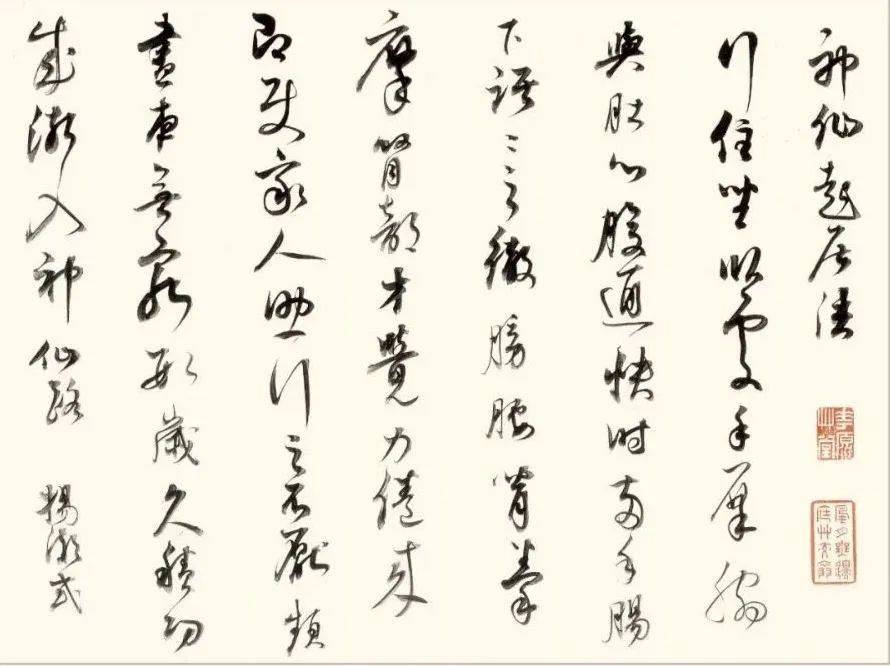 神仙起居法
行住坐卧處手摩脅
與肚心腹通快時兩手腸
下踞〻之徹膀腰背拳
摩腎部才覺力倦來
即使家人助行之不厭頻
晝夜無窮數歲久積功
成漸入神仙路 楊凝式